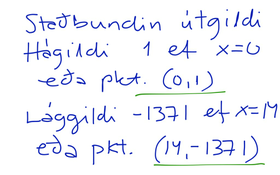 Staðbundin útgildi
Hágildi 1 ef x=0
eða pkt. (0,1)
Lággildi -1371 ef x=14
eða pkt. (14,-1371)